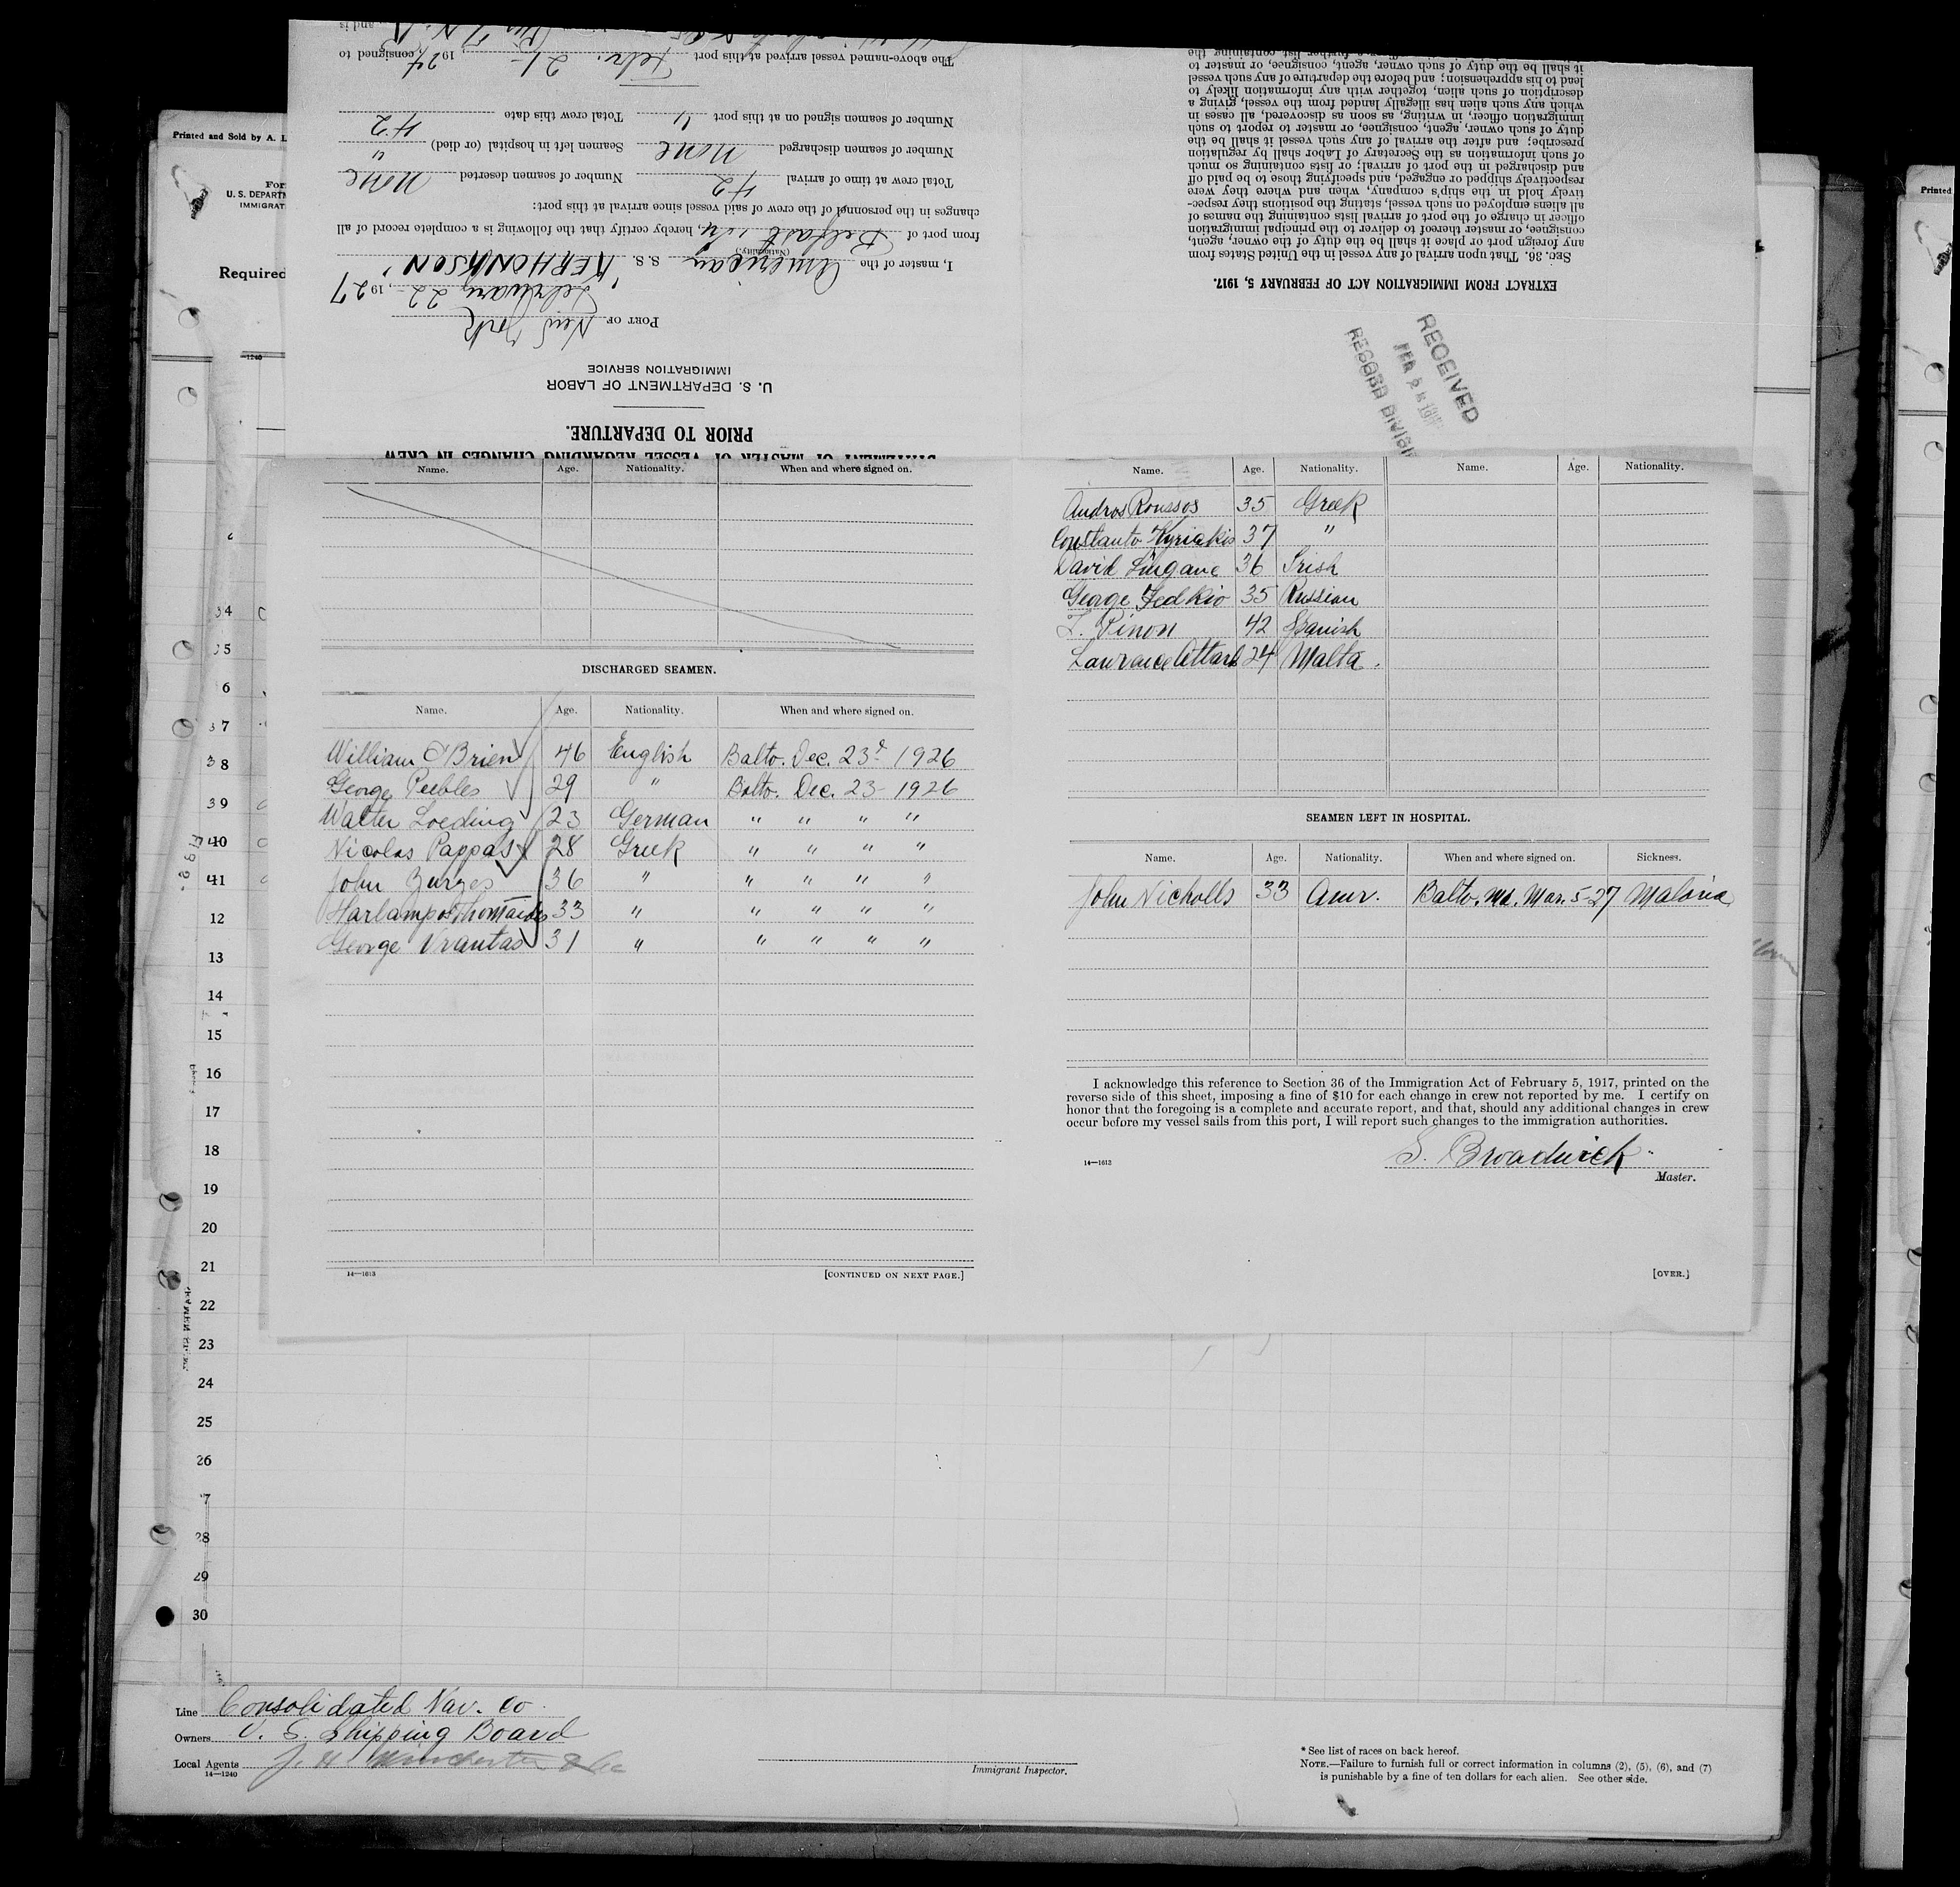 Printed and Sold by A. L.
U. S. DEPARTM
IMMIGRAT
Required
The above-named vessel arrived at this port Febr. 21-, 1927, consigned to
Number of seamen signed on at this port " Total crew this date 42
Number of seamen discharged none Seamen left in hospital (or died) "
Total crew at time of arrival 42 Number of seamen deserted none
changes in the personnel of the crew of said vessel since arrival at this port:
from port of Belfast, hereby certify that the following is a complete record of all
(Nationality.)
I, master of the American S. S. "KERHONKSON",
February 22-, 1927
PORT OF New York
IMMIGRATION SERVICE
U. S. DEPARTMENT OF LABOR
PRIOR TO DEPARTURE.
STATEMENT OF MASTER OF VESSEL REGARDING CHANGES IN CREW
it shall be the duty of such owner, agent, consignee, or master to
lead to his apprehension; and before the departure of any such vessel
description of such alien, together with any information likely to
which any such alien has illegally landed from the vessel, giving a
immigration officer, in writing, as soon as discovered, all cases in
duty of such owner, agent, consignee, or master to report to such
prescribe; and after the arrival of any such vessel it shall be the
of such information as the Secretary of Labor shall by regulation
and discharged in the port of arrival; or lists containing so much
respectively shipped or engaged, and specifying those to be paid off
tively hold in the ship's company, when and where they were
all aliens employed on such vessel, stating the positions they respec-
officer in charge of the port of arrival lists containing the names of
consignee, or master thereof to deliver to the principal immigration
any foreign port or place it shall be the duty of the owner, agent,
SEC. 36. That upon arrival of any vessel in the United States from
EXTRACT FROM IMMIGRATION ACT OF FEBRUARY 5, 1917.
RECEIVED
FEB
RECORD DIVISI
Name. Age. Nationality. When and where signed on.
DISCHARGED SEAMEN.
Name. Age. Nationality. When and where signed on.
William O'Brien 46 English Balto. Dec. 23d 1926
George Peebles 29 " Balto. Dec. 23- 1926
Walter Loeding 23 German " " " "
Nicolas Pappas 28 Greek " " " "
John 36 " " " " "
33 " " " " "
George Vrantas 31 " " " " "
14—1613 [CONTINUED ON NEXT PAGE.]
Name. Age. Nationality. Name. Age. Nationality.
Andros Roussos 35 Greek
Constanto Kyriakis 37 "
David Lingane 36 Irish
George Fedkio 35 Russian
Pinon 42 Spanish
Lawrance Attard 24 Malta.
SEAMEN LEFT IN HOSPITAL.
Name. Age. Nationality. When and where signed on. Sickness.
John Nicholls 33 Amr. Balto. Md. Mar. 5-27 Malaria
I acknowledge this reference to Section 36 of the Immigration Act of February 5, 1917, printed on the
reverse side of this sheet, imposing a fine of $10 for each change in crew not reported by me. I certify on
honor that the foregoing is a complete and accurate report, and that, should any additional changes in crew
occur before my vessel sails from this port, I will report such changes to the immigration authorities.
S. Broadwick
14—1613 Master.
[OVER.]
34
35
6
37
38
39
40
41
12
13
14
15
16
17
18
19
20
21
22
23
24
25
26
28
29
30
Line Consolidated Nav. Co
Owners U. S. Shipping Board
Local Agents J. H. Winchester & Co
14—1240
Immigrant Inspector.
* See list of races on back hereof.
NOTE.—Failure to furnish full or correct information in columns (2), (5), (6), and (7)
is punishable by a fine of ten dollars for each alien. See other side.
Printed